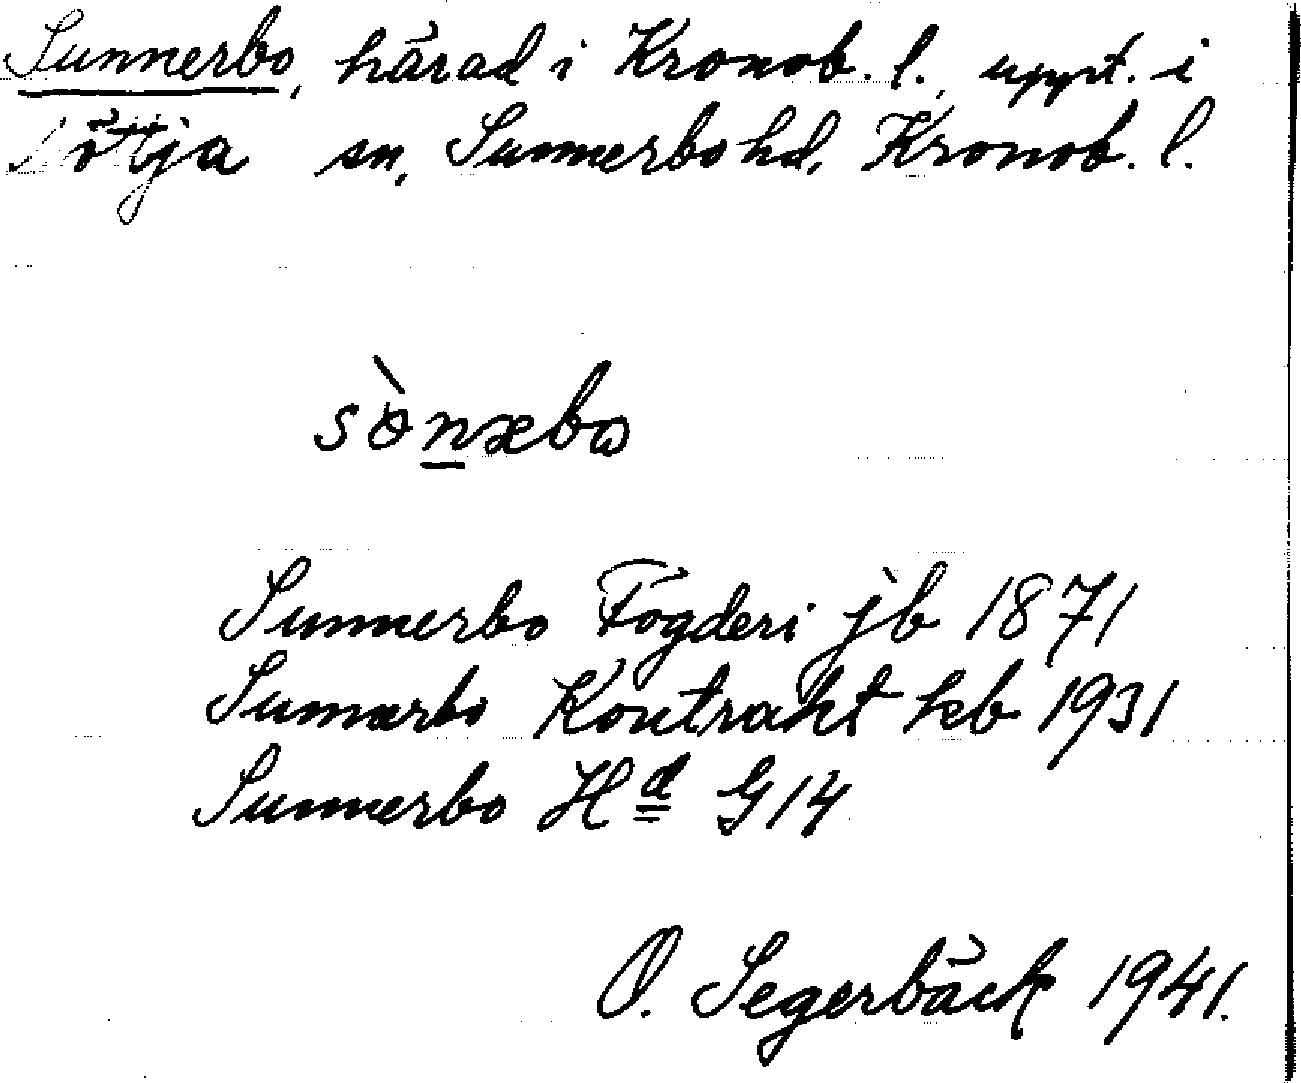 Sunnerbo, härad i Kronob. l., uppt. i
Göttja sn, Sunnerbo hd, Kronob. l.
sònæbo
Sunnerbo Fögderi jb 1871
Sunnerbo Kontrakt kb 1931
Sunnerbo Hd G14
O. Segerbäck 1941.